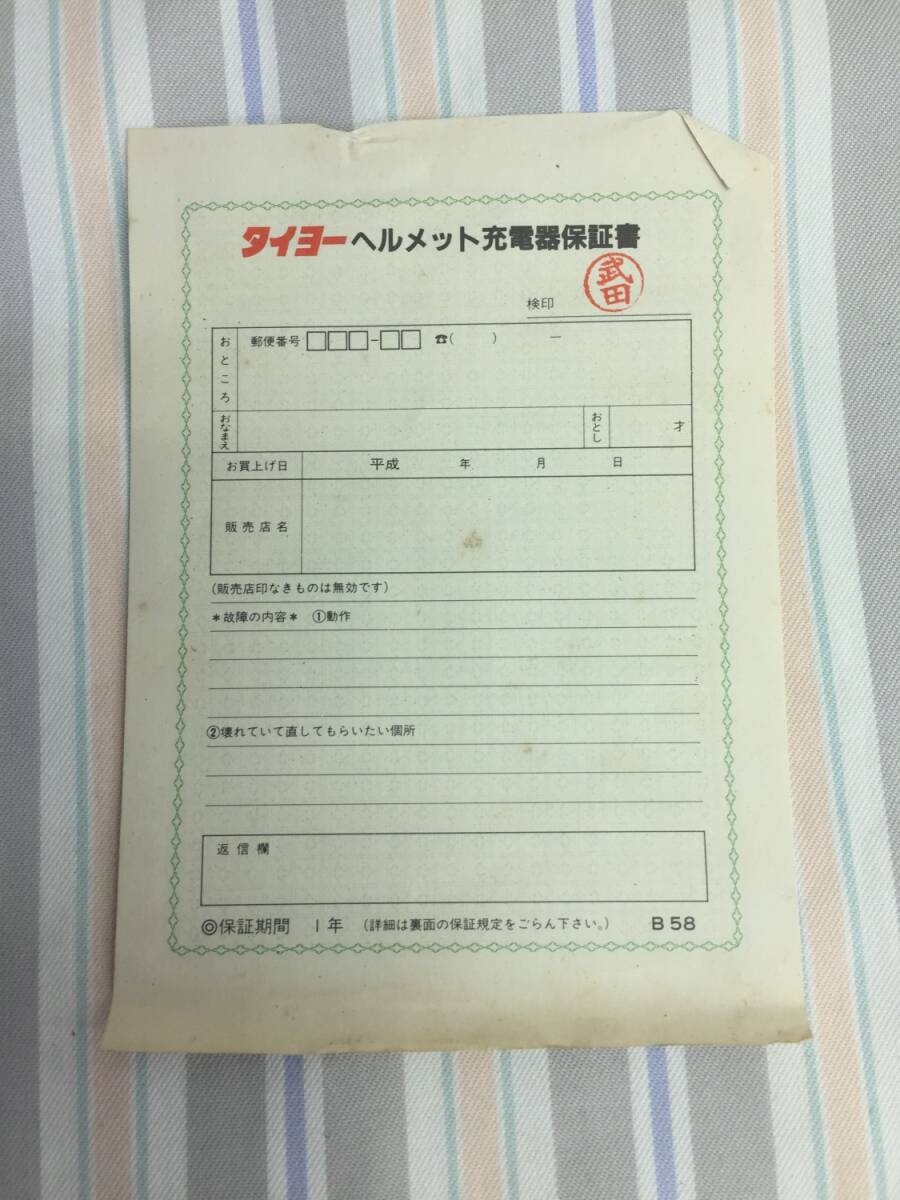 タイヨーヘルメット充電器保証書
検印 武田
おところ 郵便番号 □□□-□□ ☎( ) ー
おなまえ おとし 才
お買上げ日 平成 年 月 日
販売店名
(販売店印なきものは無効です)
*故障の内容* ①動作
②壊れていて直してもらいたい個所
返信欄
◎保証期間 1年 (詳細は裏面の保証規定をごらん下さい。) B58